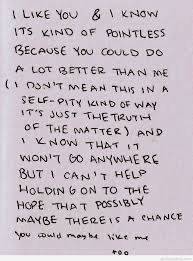 I LIKE YOU & I KNOW
ITS KIND OF POINTLESS
BECAUSE YOU COULD DO
A LOT BETTER THAN ME
(I DON'T MEAN THIS IN A
SELF-PITY KIND OF WAY
IT'S JUST THE TRUTH
OF THE MATTER) AND
I KNOW THAT IT
WON'T GO ANYWHERE
BUT I CAN'T HELP
HOLDING ON TO THE
HOPE THAT POSSIBLY
MAYBE THERE IS A CHANCE
YOU COULD MAYBE LIKE ME
TOO